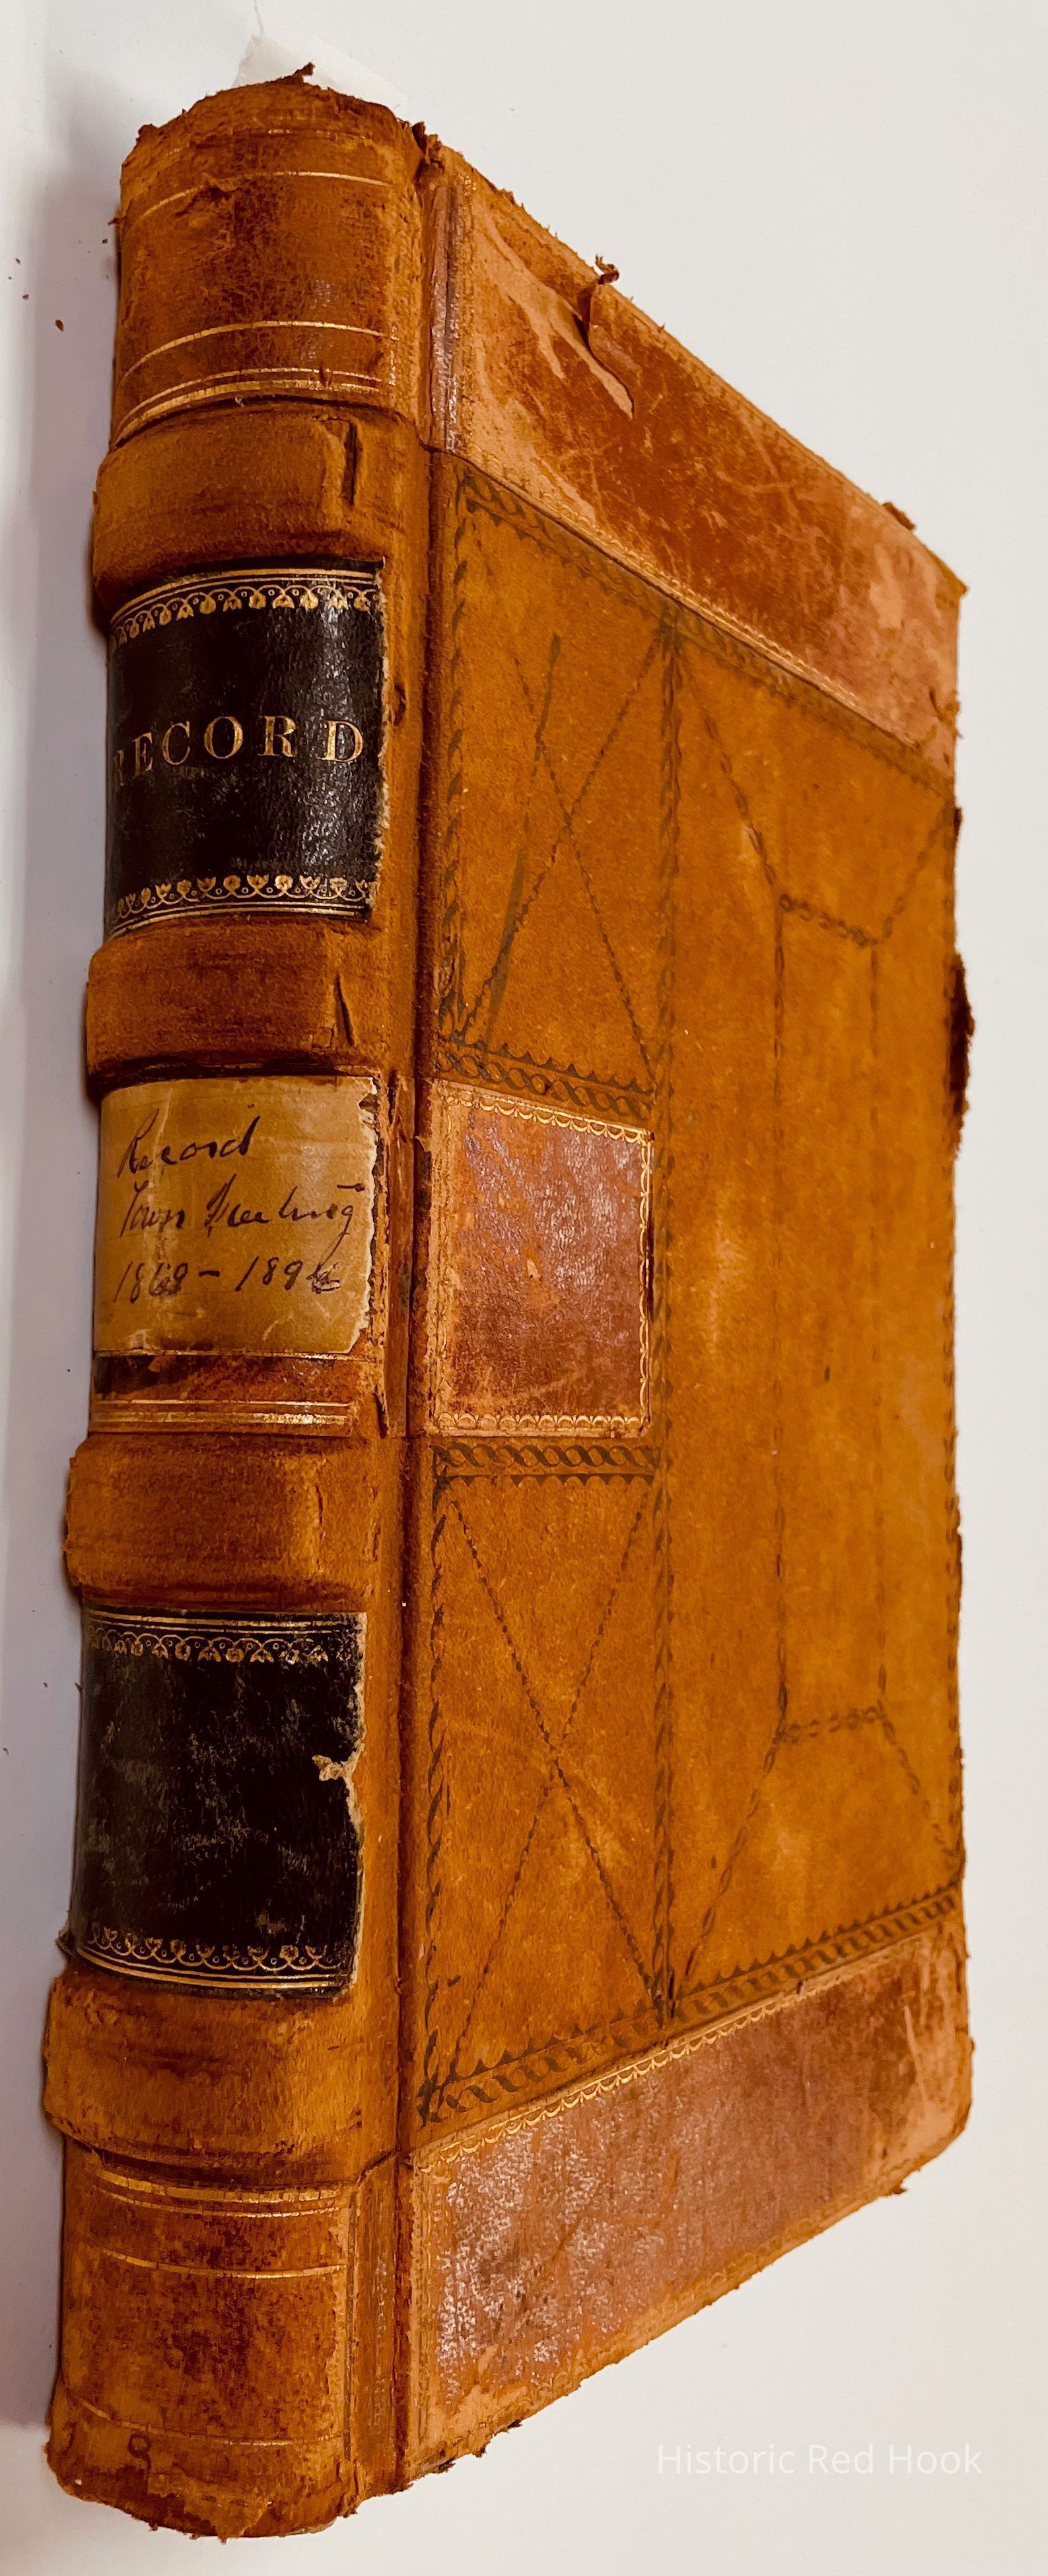 RECORD
Record
Town Meeting
1868 - 1894
8
Historic Red Hook